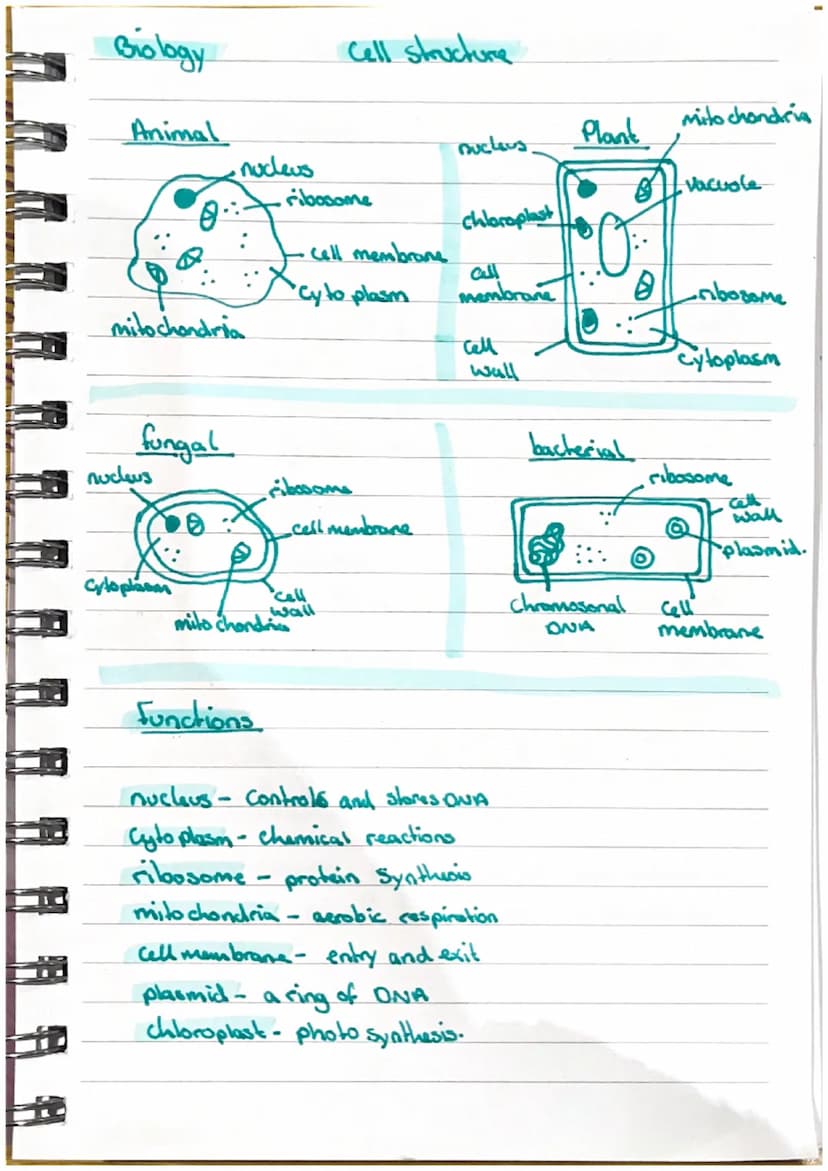 Biology
Cell structure
Animal
nucleus
ribosome
cell membrane
cytoplasm
mitochondria
Plant
mitochondria
nucleus
vacuole
chloroplast
cell
membrane
ribosome
cell
wall
cytoplasm
fungal
nucleus
ribosome
cell membrane
cytoplasm
cell
wall
mitochondria
bacterial
ribosome
cell
wall
plasmid.
Chromosonal
DNA
cell
membrane
Functions
nucleus - controls and stores DNA
cytoplasm - chemical reactions
ribosome - protein synthesis
mitochondria - aerobic respiration
cell membrane - entry and exit
plasmid - a ring of DNA
chloroplast - photosynthesis.